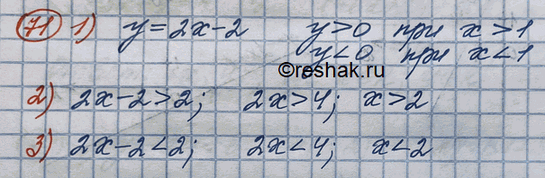 71 1) y=2x-2 y>0 при x>1
y<0 при x<1
©reshak.ru
2) 2x-2>2; 2x>4; x>2
3) 2x-2<2; 2x<4; x<2